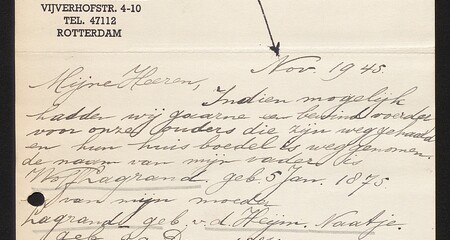 VIJVERHOFSTR. 4-10
TEL. 47112
ROTTERDAM
Nov. 1945.
Mijne Heeren,
Indien mogelijk
hadden wij gaarne een
voor onze ouders die zijn weggehaald
en hun huis boedel is weggenomen.
de naam van mijn vader is
Lagrand geb 5 Jan. 1875
van mijn moeder
Lagrand geb v. d. Heijm. Naatje.
geb